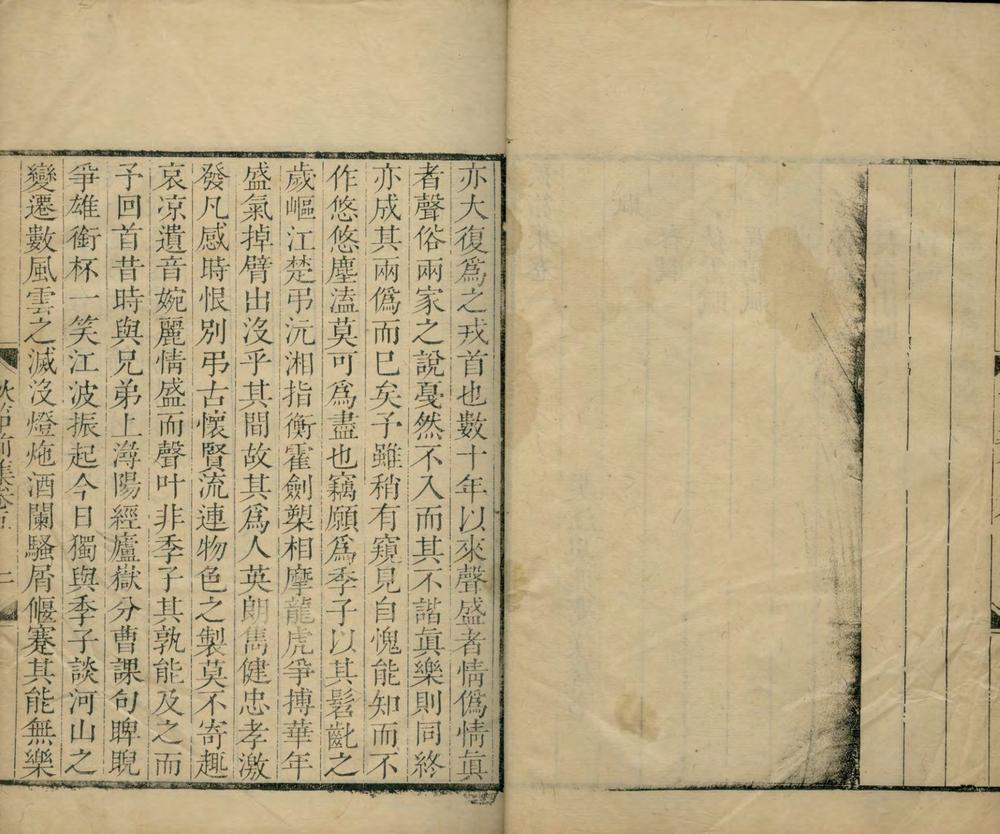 亦大復爲之戎首也數十年以來聲盛者情僞情眞
者聲俗兩家之說戞然不入而其不諧眞樂則同終
亦成其兩僞而巳矣予雖稍有窺見自愧能知而不
作悠悠塵溘莫可爲盡也竊願爲季子以其髫齔之
歲嶇江楚弔沅湘指衡霍劍槊相摩龍虎爭搏華年
盛氣掉臂出沒乎其間故其爲人英朗雋健忠孝激
發凡感時恨別弔古懷賢流連物色之製莫不寄趣
哀凉遺音婉麗情盛而聲叶非季子其孰能及之而
予回首昔時與兄弟上潯陽經廬嶽分曹課句睥睨
爭雄銜杯一笑江波振起今日獨與季子談河山之
變遷數風雲之滅沒燈炧酒闌騷屑偃蹇其能無樂
前集卷
二